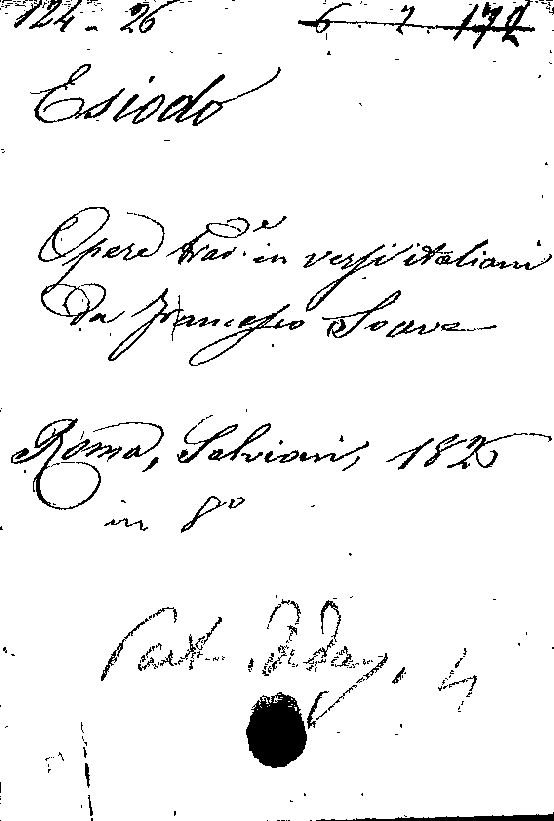 124-26 6. 2. 172
Esiodo
Opere trad.e in versi italiani
da Francesco Soave
Roma, Salviani, 1825
in 8º
Part. 4